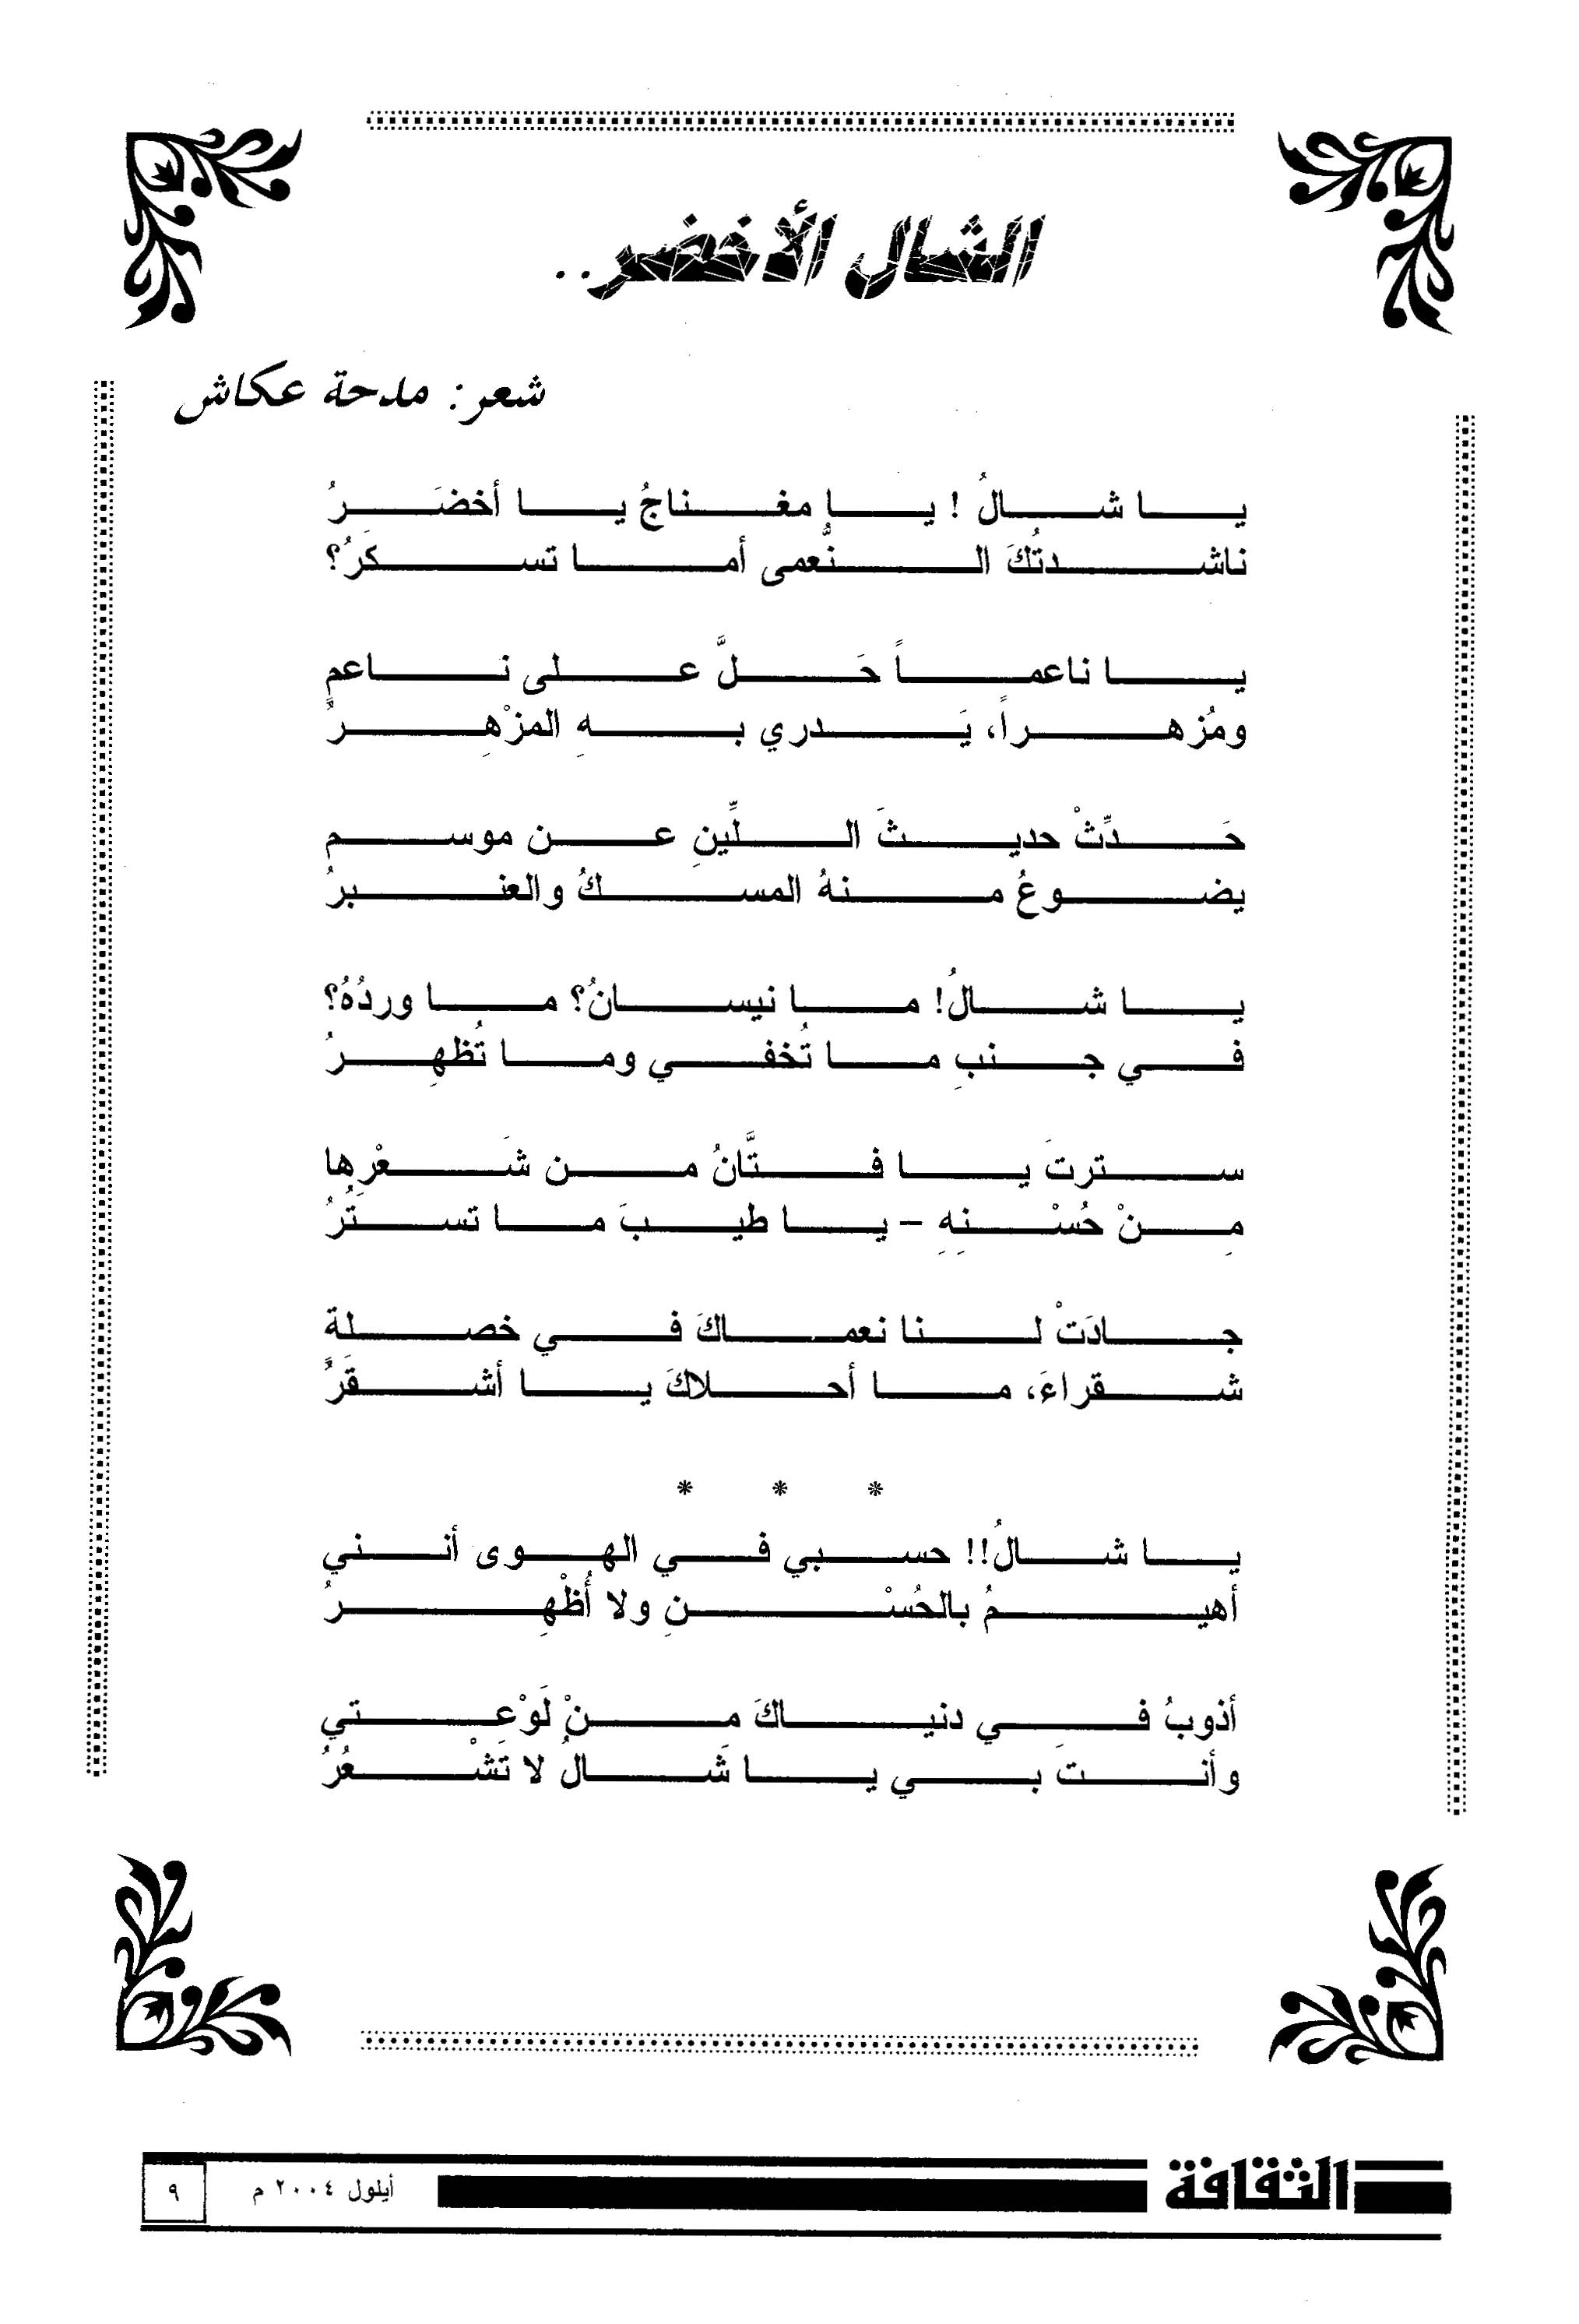 الشال الأخضر..
شعر: مدحة عكاش
يا شالُ ! يا مغناجُ يا أخضَرُ
ناشدتُكَ النُّعمى أما تسكَرُ؟
يا ناعماً حَلَّ على ناعمٍ
ومُزهراً، يَدري بهِ المزْهِرُ
حَدِّثْ حديثَ اللِّينِ عن موسمٍ
يضوعُ منهُ المسكُ والعنبرُ
يا شالُ! ما نيسانُ؟ ما وردُهُ؟
في جنبِ ما تُخفي وما تُظهِرُ
سترتَ يا فتَّانُ من شَعْرِها
مِنْ حُسْنِهِ – يا طيبَ ما تستُرُ
جادَتْ لنا نعماكَ في خصلة
شقراءَ، ما أحلاكَ يا أشقَرُ
* * *
يا شالُ!! حسبي في الهوى أنني
أهيمُ بالحُسْنِ ولا أُظْهِرُ
أذوبُ في دنياكَ منْ لَوْعَتي
وأنتَ بي يا شَالُ لا تَشْعُرُ
الثقافة
أيلول ٢٠٠٤ م
٩